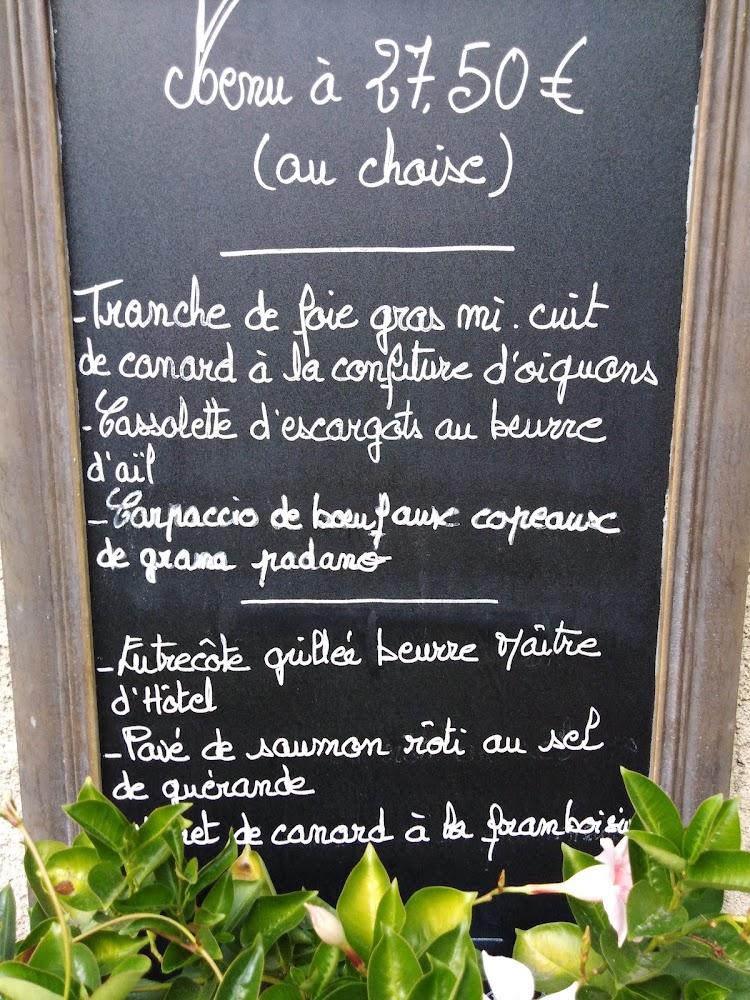 Menu à 27,50 €
(au choise)
-Tranche de foie gras mi.cuit
de canard à la confiture d'oignons
-Cassolette d'escargots au beurre
d'aïl
-Carpaccio de bœuf aux copeaux
de grana padano
-Entrecôte grillée beurre Maître
d'Hôtel
-Pavé de saumon rôti au sel
de guérande
de canard à la